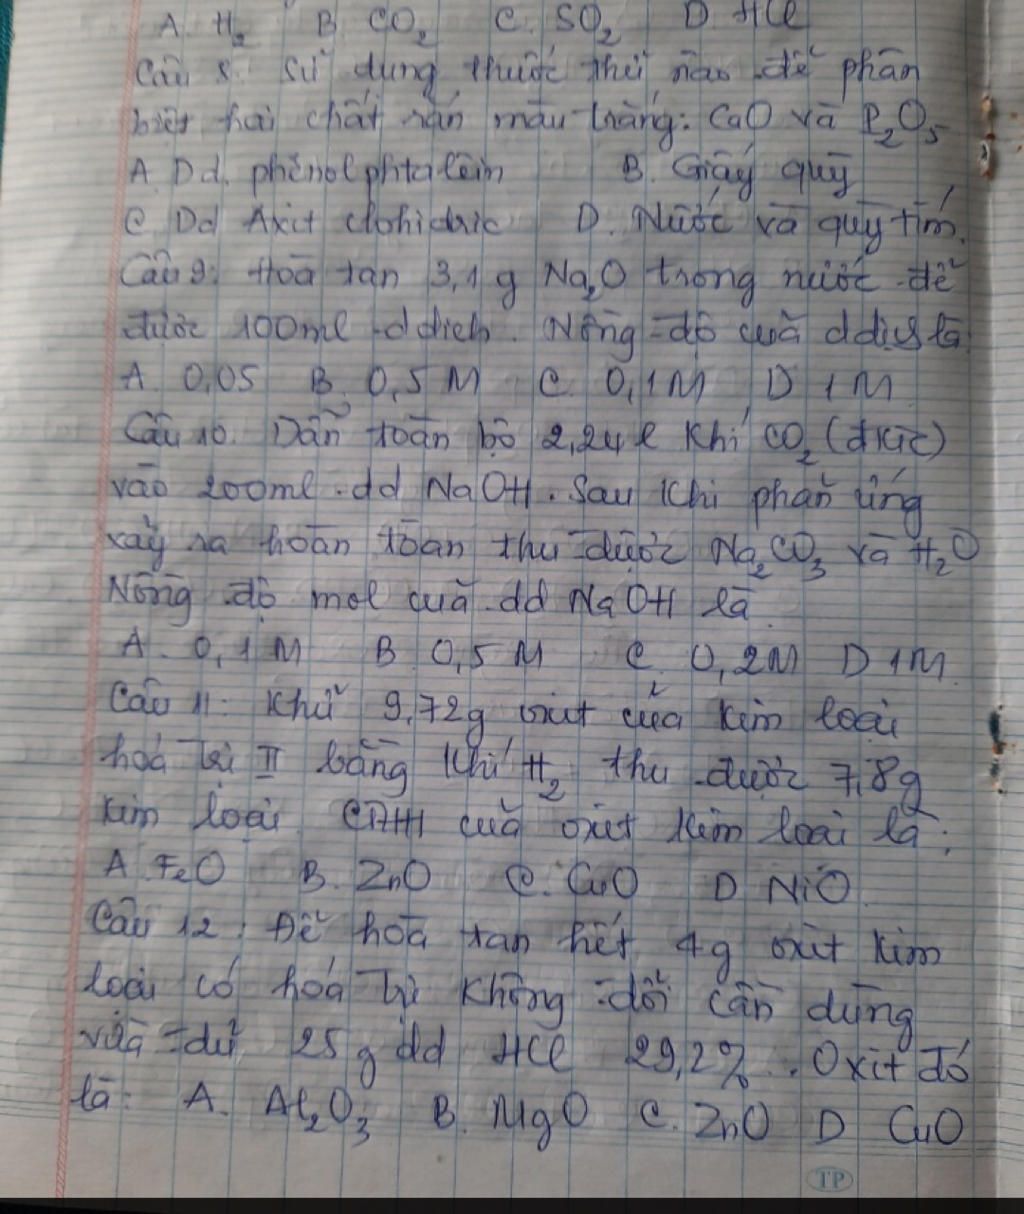 A. H₂ B. CO₂ C. SO₂ D. HCl
Câu 8. Sử dụng thuốc thử nào để phân
biệt hai chất rắn màu trắng: CaO và P₂O₅
A. Dd. phênolphtalêin B. Giấy quỳ
C. Dd Axit clohidric D. Nước và quỳ tím.
Câu 9: Hoà tan 3,1g Na₂O trong nước để
được 100ml ddịch. Nồng độ của ddịch là:
A. 0,05 B. 0,5M C. 0,1M D 1M
Câu 10. Dẫn toàn bộ 2,24l khí CO₂ (đktc)
vào 200ml dd NaOH. Sau khi phản ứng
xảy ra hoàn toàn thu được Na₂CO₃ và H₂O
Nồng độ mol của dd NaOH là.
A. 0,1M B. 0,5M C. 0,2M D 1M.
Câu 11: Khử 9,72g oxit của kim loại
hoá trị II bằng khí H₂ thu được 7,8g
kim loại. CTHH của oxit kim loại là:
A. FeO B. ZnO C. CuO D. NiO.
Câu 12: Để hoà tan hết 4g oxit kim
loại có hoá trị không đổi cần dùng
vừa đủ 25g dd HCl 29,2%. Oxit đó
là: A. Al₂O₃ B. MgO C. ZnO D CuO
TP